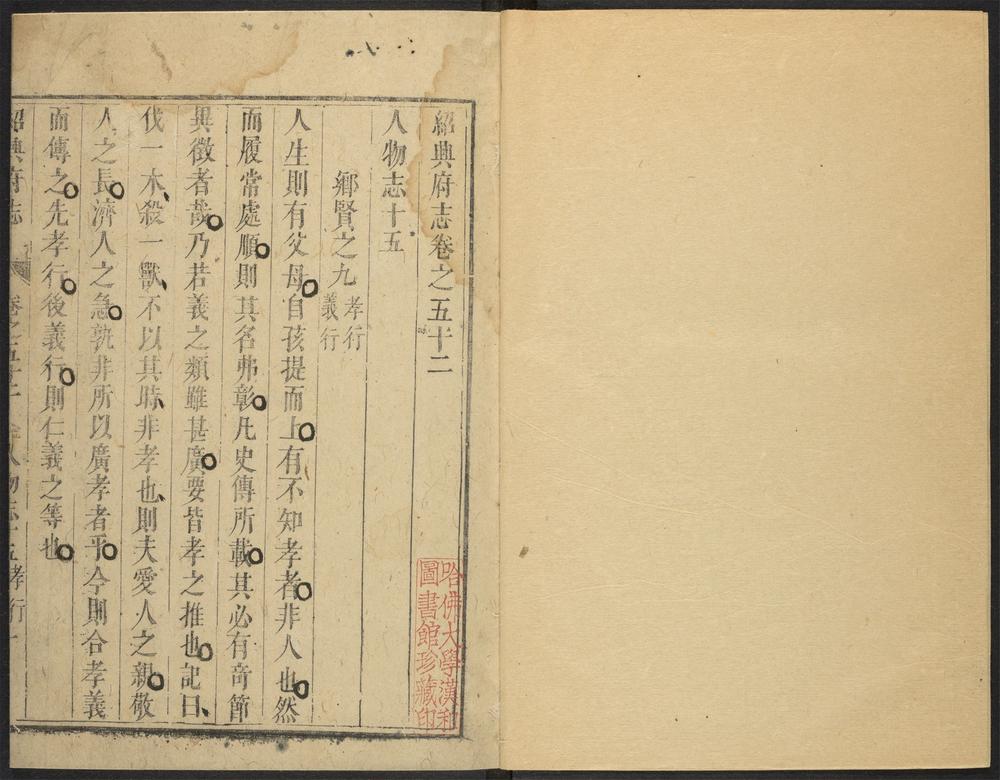 紹興府志卷之五十二
人物志十五
鄉賢之九 孝行 義行
人生則有父母自孩提而上有不知孝者非人也然
而履常處順則其名弗彰凡史傳所載其必有奇節
異徵者哉乃若義之類雖甚廣要皆孝之推也記曰
伐一木殺一獸不以其時非孝也則夫愛人之親敬
人之長濟人之急孰非所以廣孝者乎今則合孝義
而傳之先孝行後義行則仁義之等也
紹興府志 卷之五十二 人物志十五孝行 一
哈佛大學漢和
圖書館珍藏印